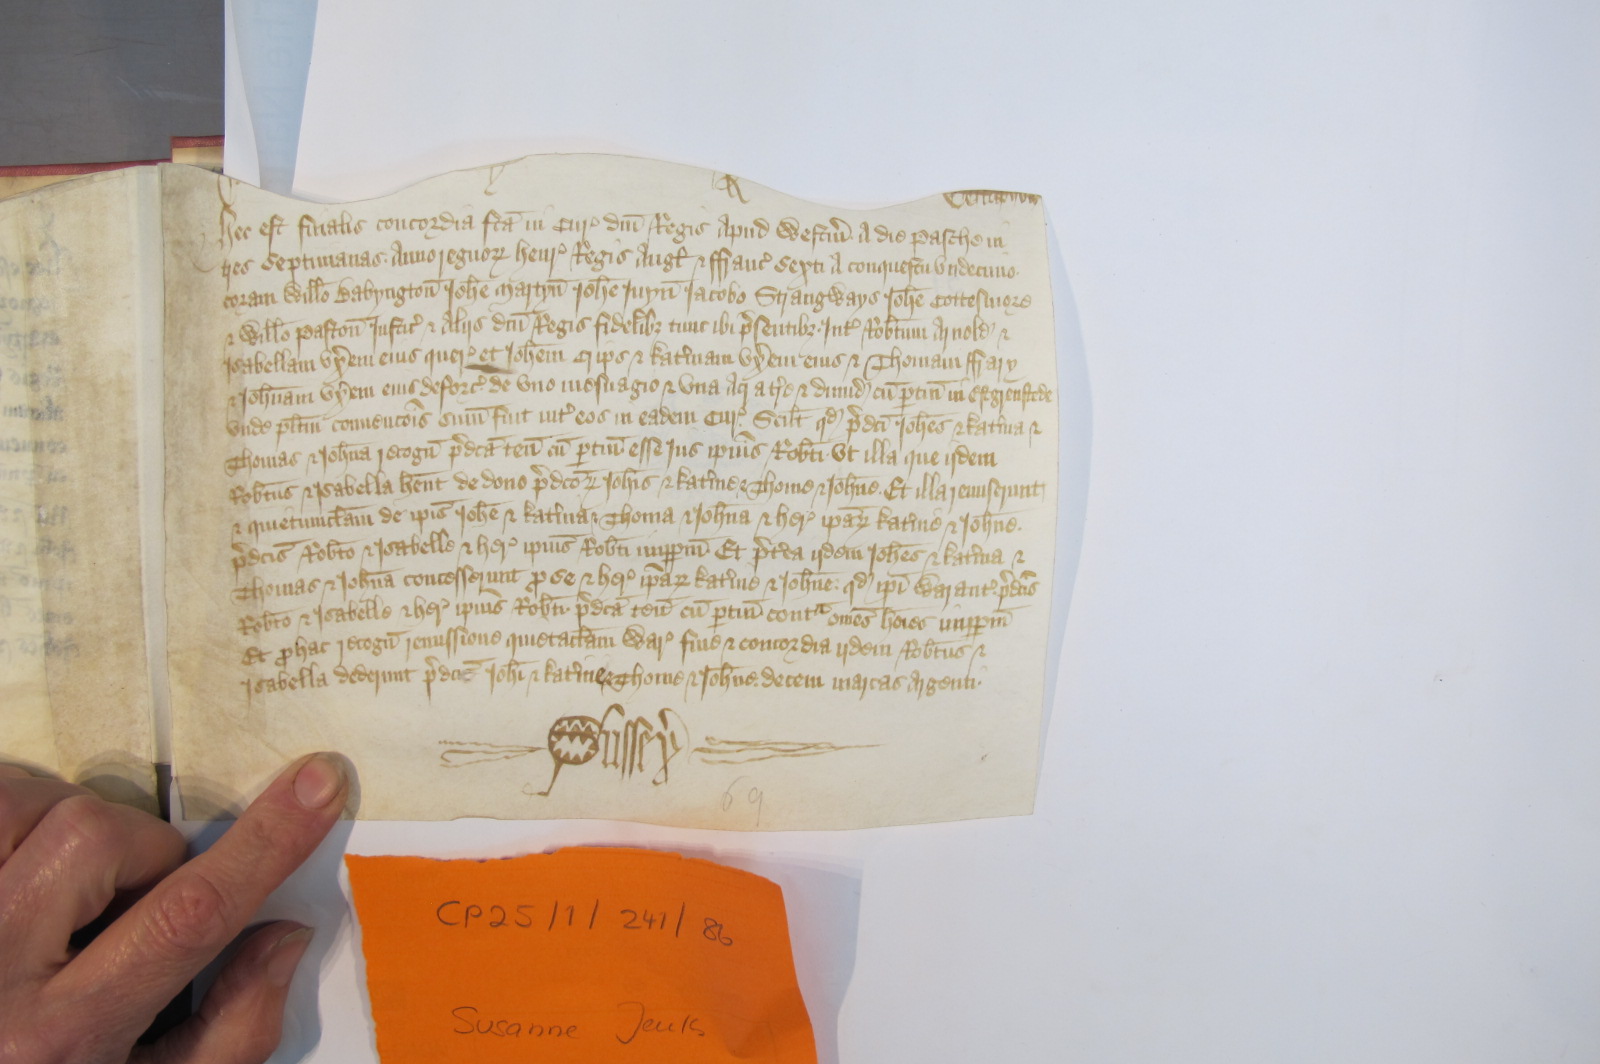 Hec est finalis concordia fcā in Cur' dn̄i Regis Apud Westm̄ . A die Pasche in
tres septimanas . Anno regnor' Henr' Regis Angl' & ffranc' sexti A conquestu vndecimo .
coram Will̄o Babyngton̄ Joh̄e Martyn̄ Joh̄e Juyn̄ Jacobo Strangways Joh̄e Cottesmore
& Will̄o Paston̄ Justic' & Alijs dn̄i Regis fidelibʒ tunc ibi p̄sentibʒ . Int' Rob̄tum Arnold' &
Isabellam vx̄em eius quer' et Joh̄em Crips & Kat'inam vx̄em eius & Thomam ffrary
& Joh̄nam vx̄em eius deforc' de vno mesuagio & vna Acr̄ at're & dimid' cū p̄tin̄ in
vnde pl̄itm̄ conuenc̄ois sum̄ fuit int' eos in eadem Cur' . Scilt̄ qd' p̄dc̄i Joh̄es & Kat'ina &
Thomas & Joh̄na recogn̄ p̄dc̄a ten̄ cū p̄tin̄ esse Jus ip̄ius Rob̄ti . vt illa que ijdem
Rob̄tus & Isabella h̄ent de dono p̄dc̄or' Joh̄is & Kat'ine & Thome & Joh̄ne . Et illa remiserunt
& quietumclam̄ de ip̄is Joh̄e & Kat'ina & Thoma & Joh̄na & her' ip̄ar' Kat'ine & Joh̄ne .
p̄dc̄is Rob̄to & Isabelle & her' ip̄ius Rob̄ti imp̄p̄m̄ . Et p̄t'ea ijdem Joh̄es & Kat'ina &
Thomas & Joh̄na concesserunt p̄ se & her' ip̄ar' Kat'ine & Joh̄ne . qd' ip̄i Warant' p̄dc̄is
Rob̄to & Isabelle & her' ip̄ius Rob̄ti . p̄dc̄a ten̄ cū p̄tin̄ contᵃ om̄es hōies imp̄p̄m̄
Et p̄ hac recogn̄ remissione quietaclam̄ War' fine & concordia ijdem Rob̄tus &
Isabella dederunt p̄dc̄is Joh̄i & Kat'ine & Thome & Joh̄ne . decem marcas Argenti .
69
CP25/1/ 241/ 86
Susanne Jenks